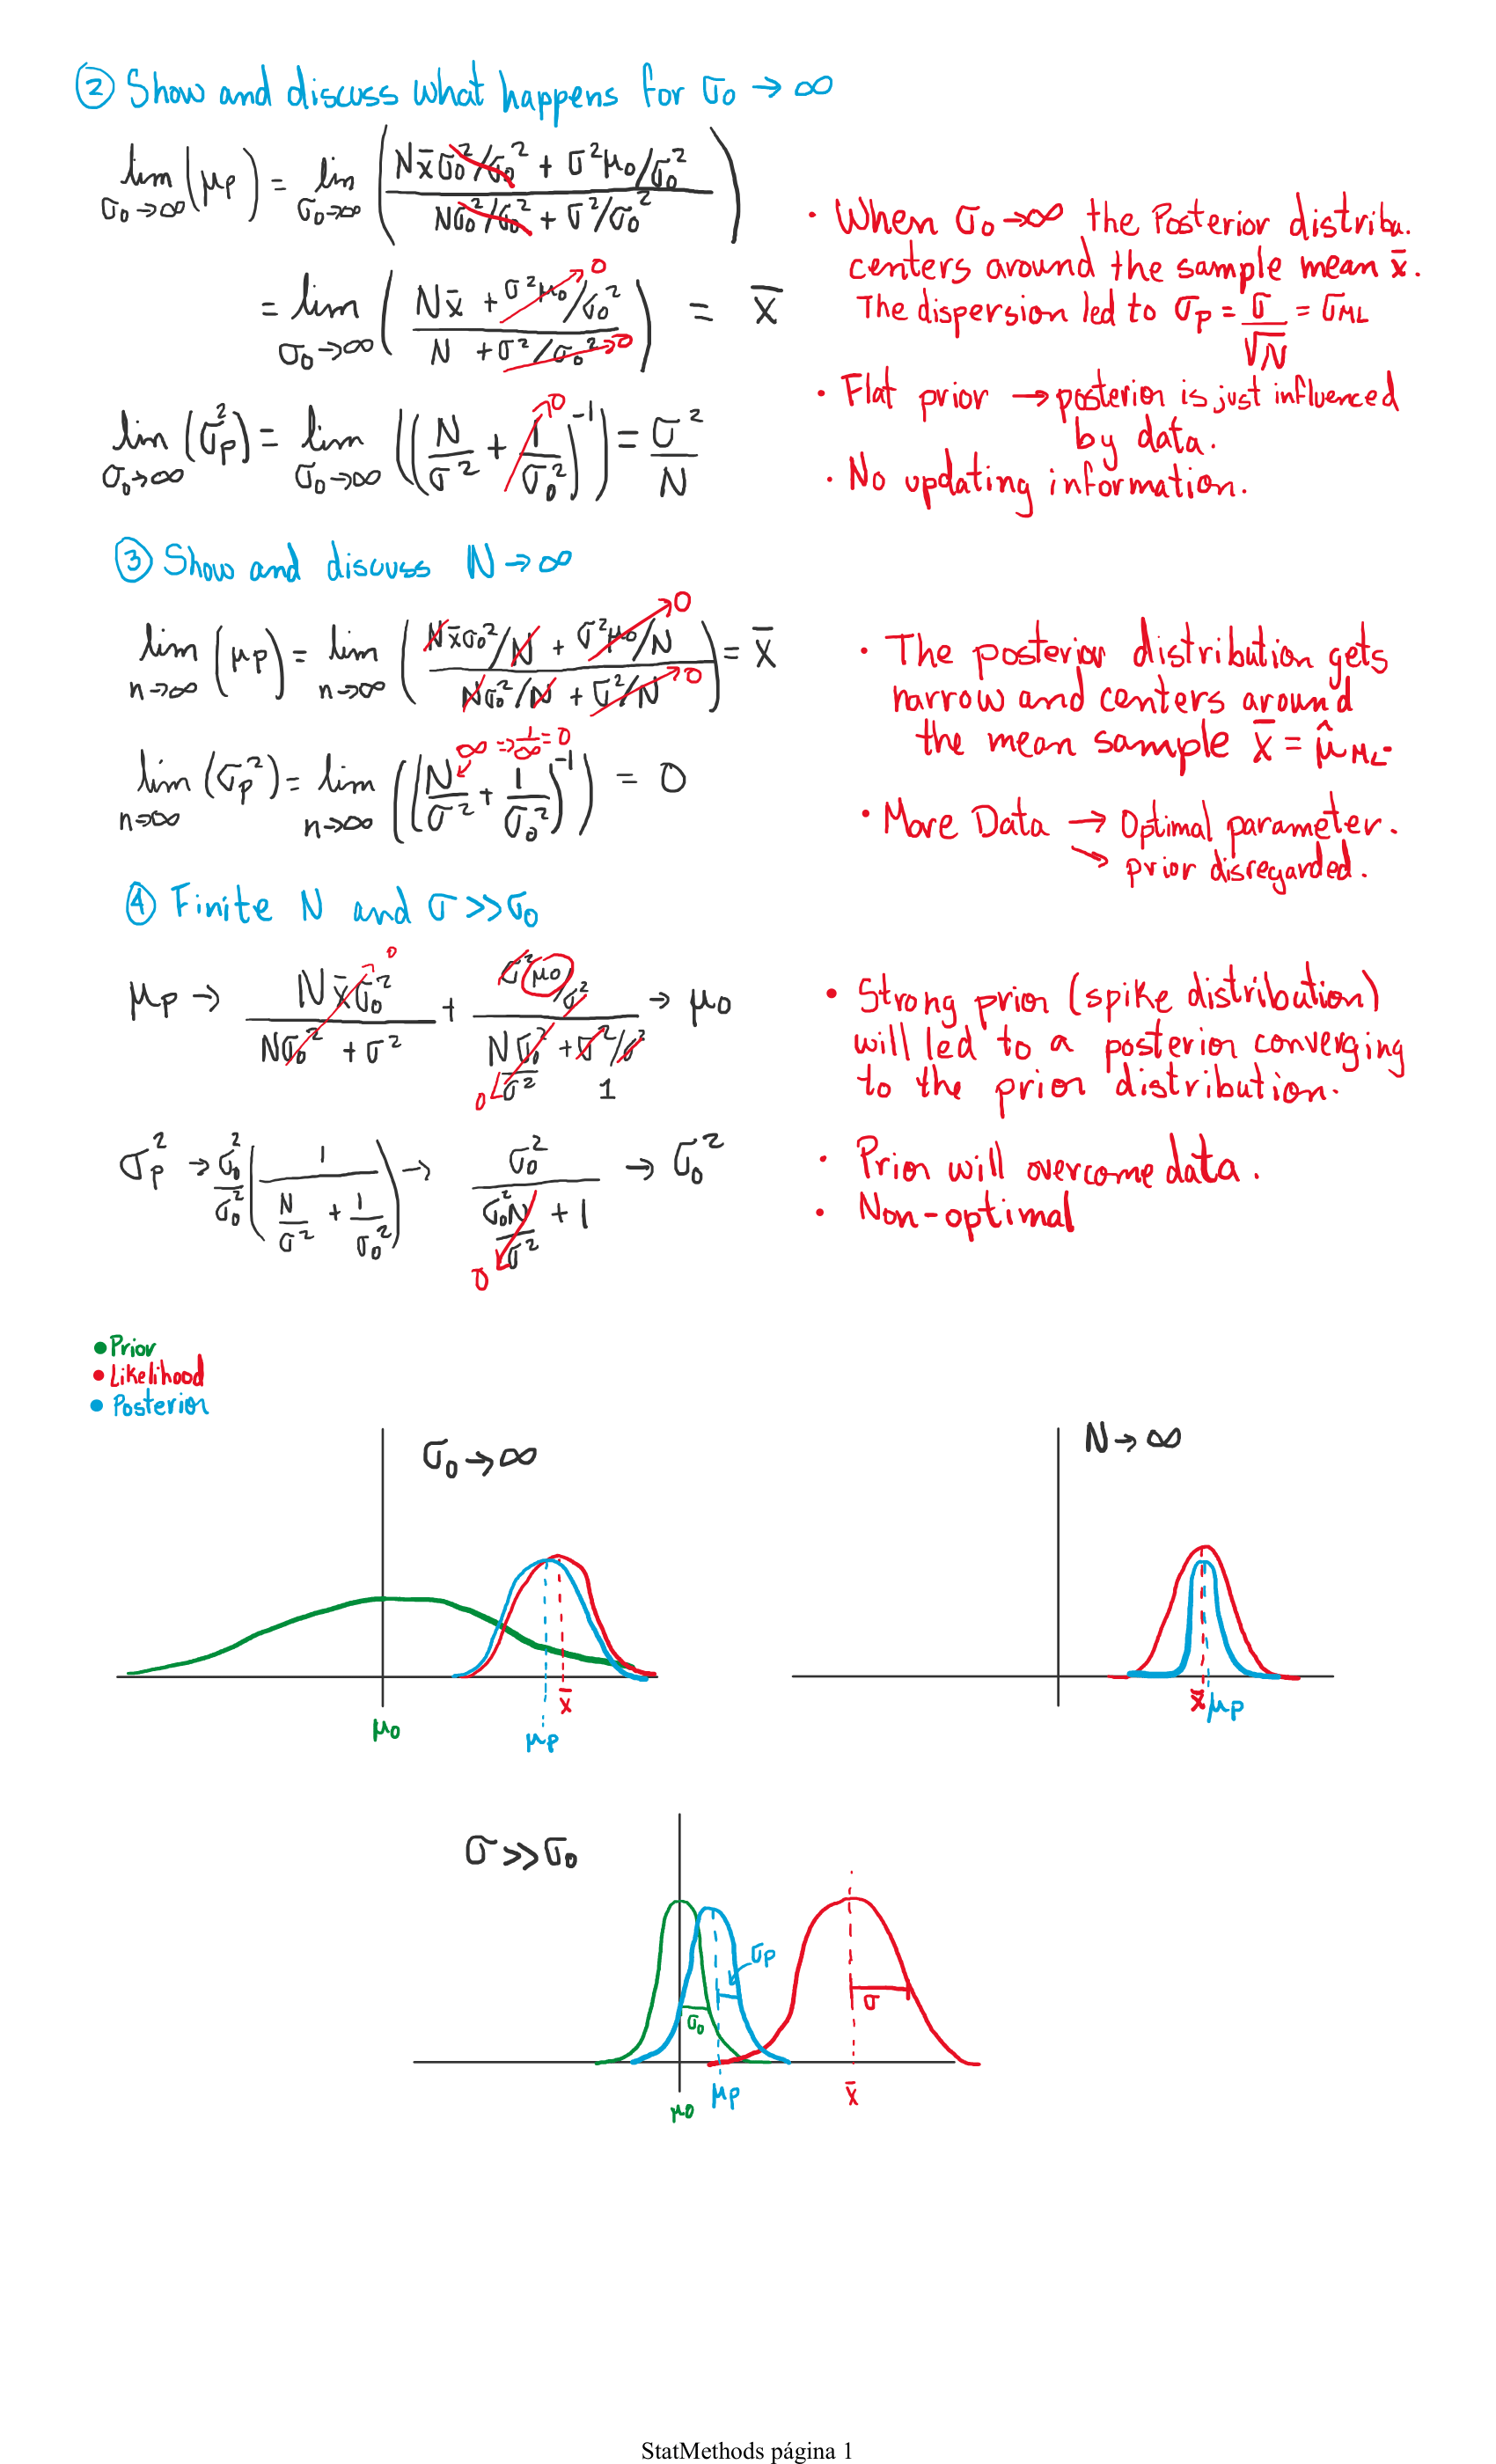 ② Show and discuss what happens for σ₀ → ∞
lim σ₀→∞ (μp) = lim σ₀→∞ ( (Nx̄σ₀²/σ₀² + σ²μ₀/σ₀²) / (Nσ₀²/σ₀² + σ²/σ₀²) )
= lim σ₀→∞ ( (Nx̄ + σ²μ₀/σ₀² → 0) / (N + σ²/σ₀² → 0) ) = x̄
lim σ₀→∞ (σp²) = lim σ₀→∞ ( (N/σ² + 1/σ₀² → 0)⁻¹ ) = σ²/N
· When σ₀→∞ the Posterior distribu.
centers around the sample mean x̄.
The dispersion led to σp = σ/√N = σML
· Flat prior → posterior is just influenced
by data.
· No updating information.
③ Show and discuss N → ∞
lim n→∞ (μp) = lim n→∞ ( (Nx̄σ₀²/N + σ²μ₀/N → 0) / (Nσ₀²/N + σ²/N → 0) ) = x̄
∞ ⇒ 1/∞ = 0
lim n→∞ (σp²) = lim n→∞ ( (N/σ² + 1/σ₀²)⁻¹ ) = 0
· The posterior distribution gets
narrow and centers around
the mean sample x̄ = μ̂ML.
· More Data → Optimal parameter.
↘ prior disregarded.
④ Finite N and σ >> σ₀
μp → (Nx̄σ₀² → 0) / (Nσ₀² + σ²) + (σ²μ₀/σ²) / (Nσ₀²/σ² + σ²/σ²) → μ₀
0 1
σp² → σ₀²/σ₀² ( 1 / (N/σ² + 1/σ₀²) ) → σ₀² / (σ₀²N/σ² + 1) → σ₀²
0
· Strong prior (spike distribution)
will led to a posterior converging
to the prior distribution.
· Prior will overcome data.
· Non-optimal
• Prior
• Likelihood
• Posterior
σ₀ → ∞
μ₀
μp
x̄
N → ∞
x̄
μp
σ >> σ₀
σp
σ₀
σ
μ₀
μp
x̄
StatMethods página 1